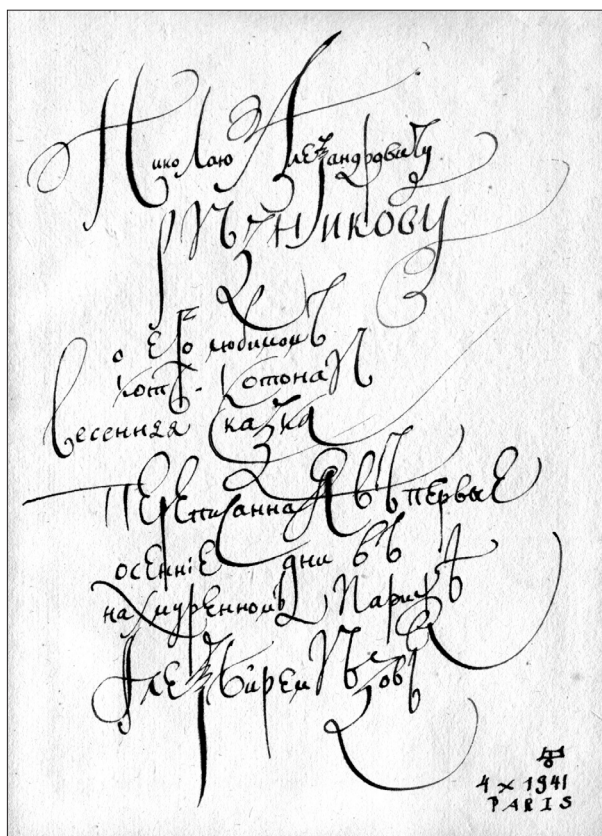 Николаю Александровичу
Рѣзникову
о его любимомъ
котѣ - Котонаѣ
весенняя сказка
переписанная въ первые
осеннiе дни въ
нахмуренномъ Парижѣ
Алексѣй Ремизовъ
4 x 1941
PARIS